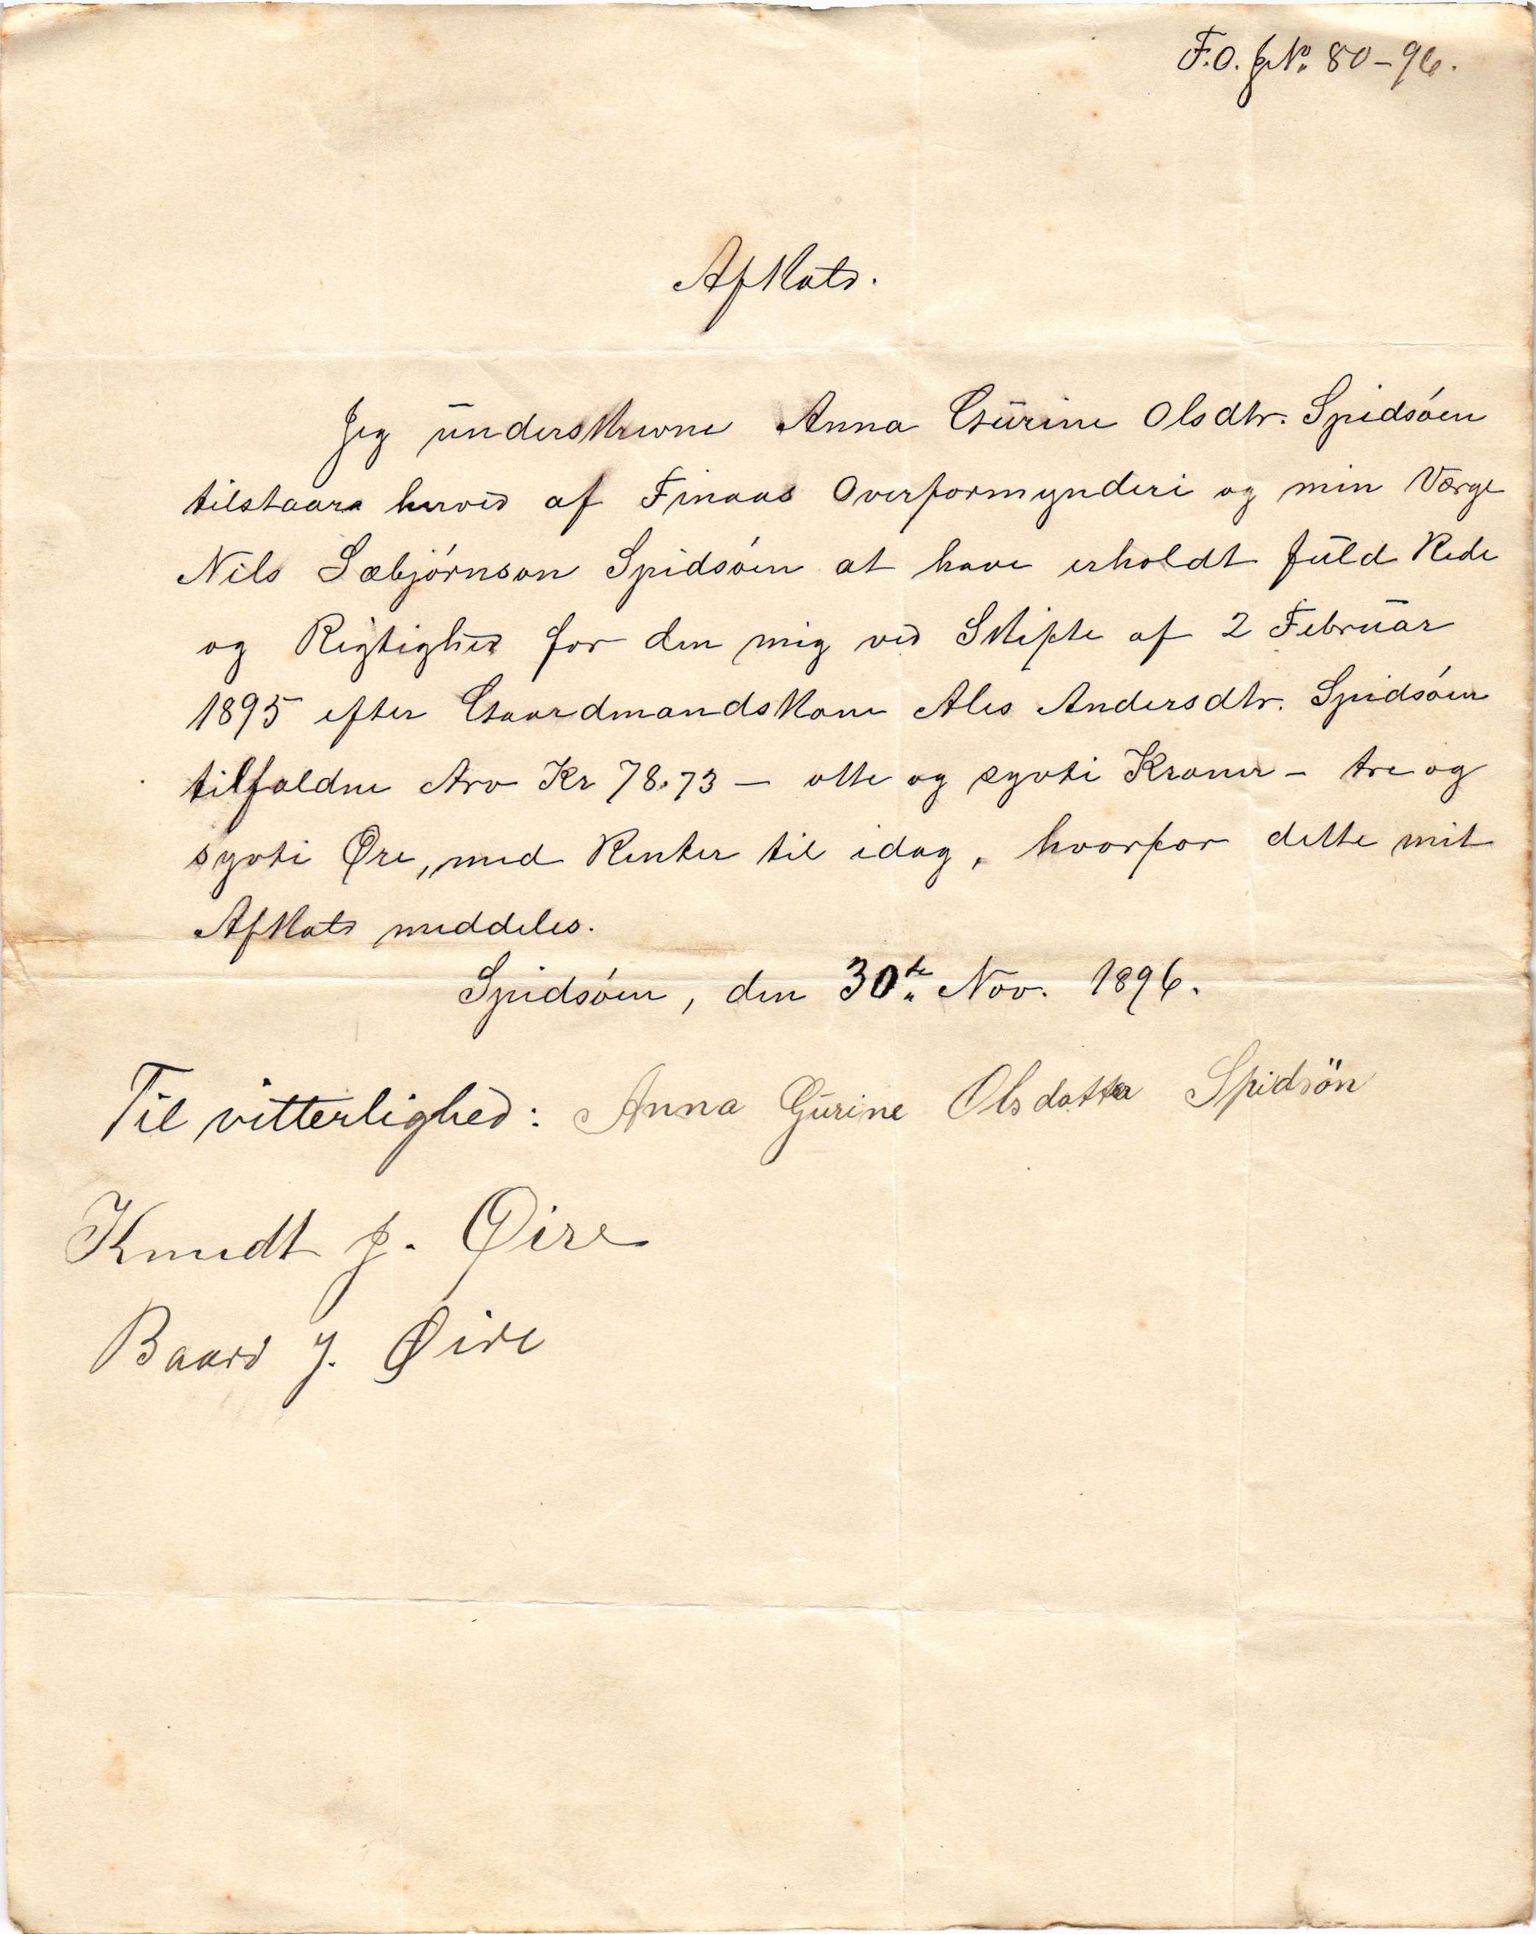 F.O. J№ 80-96.
Afkald.
Jeg underskrevne Anna Gurine Olsdtr. Spidsøen
tilstaar herved af Finaas Overformynderi og min Værge
Nils Sæbjørnson Spidsøen at have erholdt fuld Rede
og Rigtighed for den mig ved Skifte af 2 Februar
1895 efter Gaardmandskone Ales Andersdtr. Spidsøen
tilfaldne Arv Kr 78.73 — otte og syvti Kroner — tre og
syvti Øre, med Renter til idag, hvorfor dette mit
Afkald meddeles.
Spidsøen, den 30te Nov. 1896.
Til vitterlighed: Anna Gurine Olsdatter Spidsön
Knudt J. Øire
Baard J. Øire